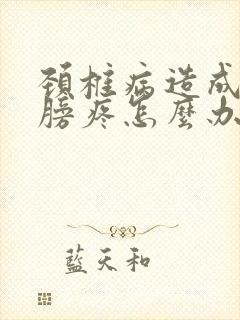 頸椎病造成
膀疼怎麼办
藍天和